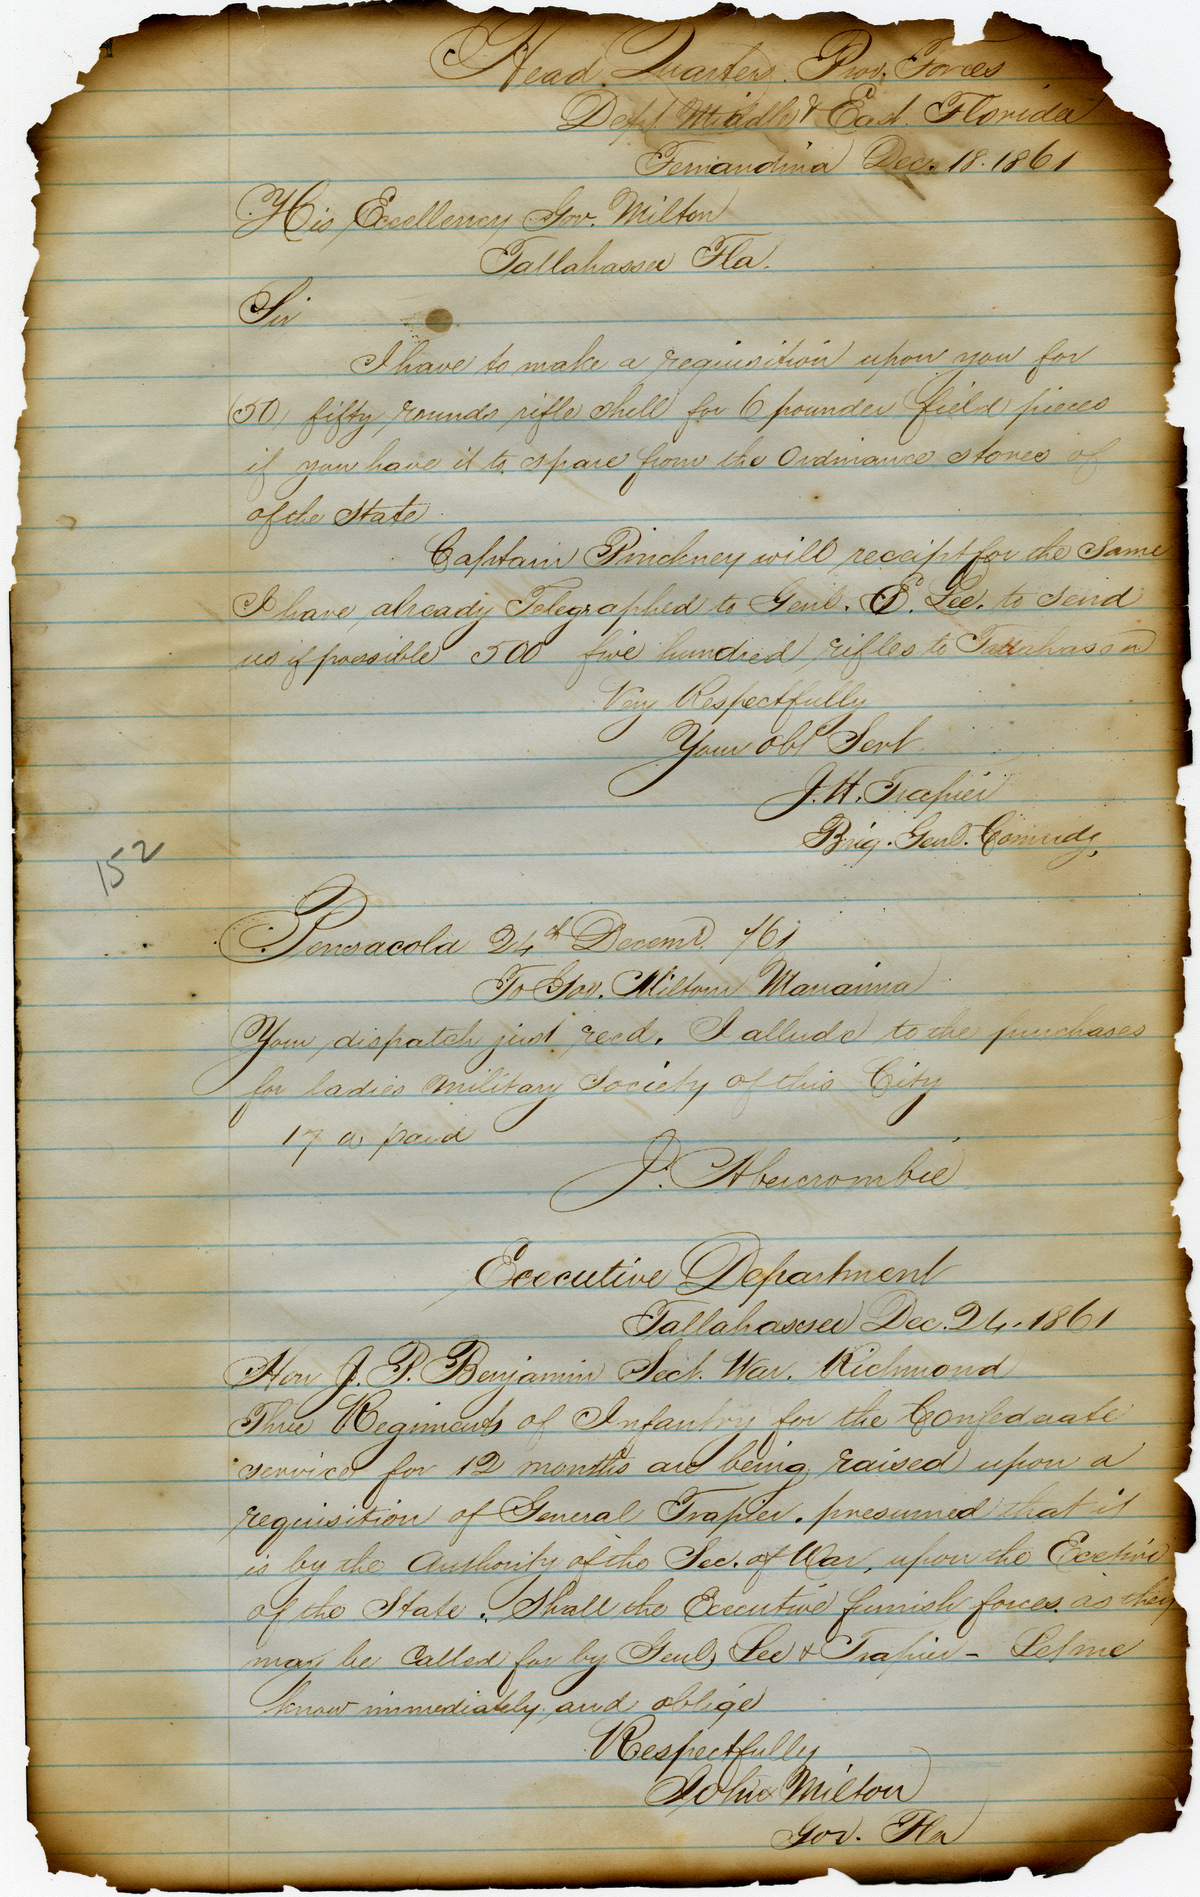 Head Quarters Prov. Forces
Dept Middle & East Florida
Fernandina Dec. 18. 1861
His Excellency Gov. Milton
Tallahassee Fla.
Sir
I have to make a requisition upon you for
(50) fifty rounds rifle shell for 6 pounder field pieces
if you have it to spare from the Ordinance stores of
of the State
Captain Pinckney will receipt for the same
I have already Telegraphed to Genl. E. Lee. to send
us if possible 500 five hundred rifles to Tallahassee
Very Respectfully
Your Obt Servt
J. H. Trapier
Brig. Genl. Comndg,
152
Pensacola 24th Decemr. /61
To Gov. Milton Marianna
Your dispatch just recd. I allude to the purchases
for ladies military Society of this City
17 a paid
J. Abercrombie
Executive Department
Tallahassee Dec. 24. 1861
Hon J. P. Benjamin Sect. War. Richmond
Three Regiments of Infantry for the Confederate
service for 12 months are being raised upon a
requisition of General Trapier. presumed that it
is by the Authority of the Sec. of War, upon the Exective
of the State. Shall the Executive furnish forces as they
may be Called for by Genls Lee & Trapier - Let me
know immediately and oblige
Respectfully
John Milton
Gov. Fla